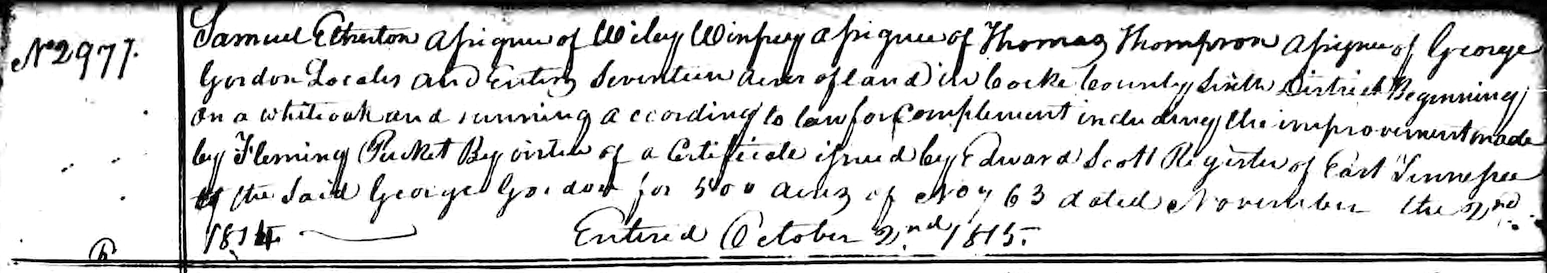 No 2977.
Samuel Etherton assignee of Wiley Winfrey assignee of Thomas Thompson assignee of George
Gordon Locates and Enters Seventeen acres of land in Cocke County Sixth District Beginning
on a white oak and running according to law for complement including the improvement made
by Fleming Pucket By virtue of a Certificate issued by Edward Scott Register of East Tennessee
to the Said George Gordon for 500 acres of No 763 dated November the 2nd
1814. Entered October 2nd 1815.